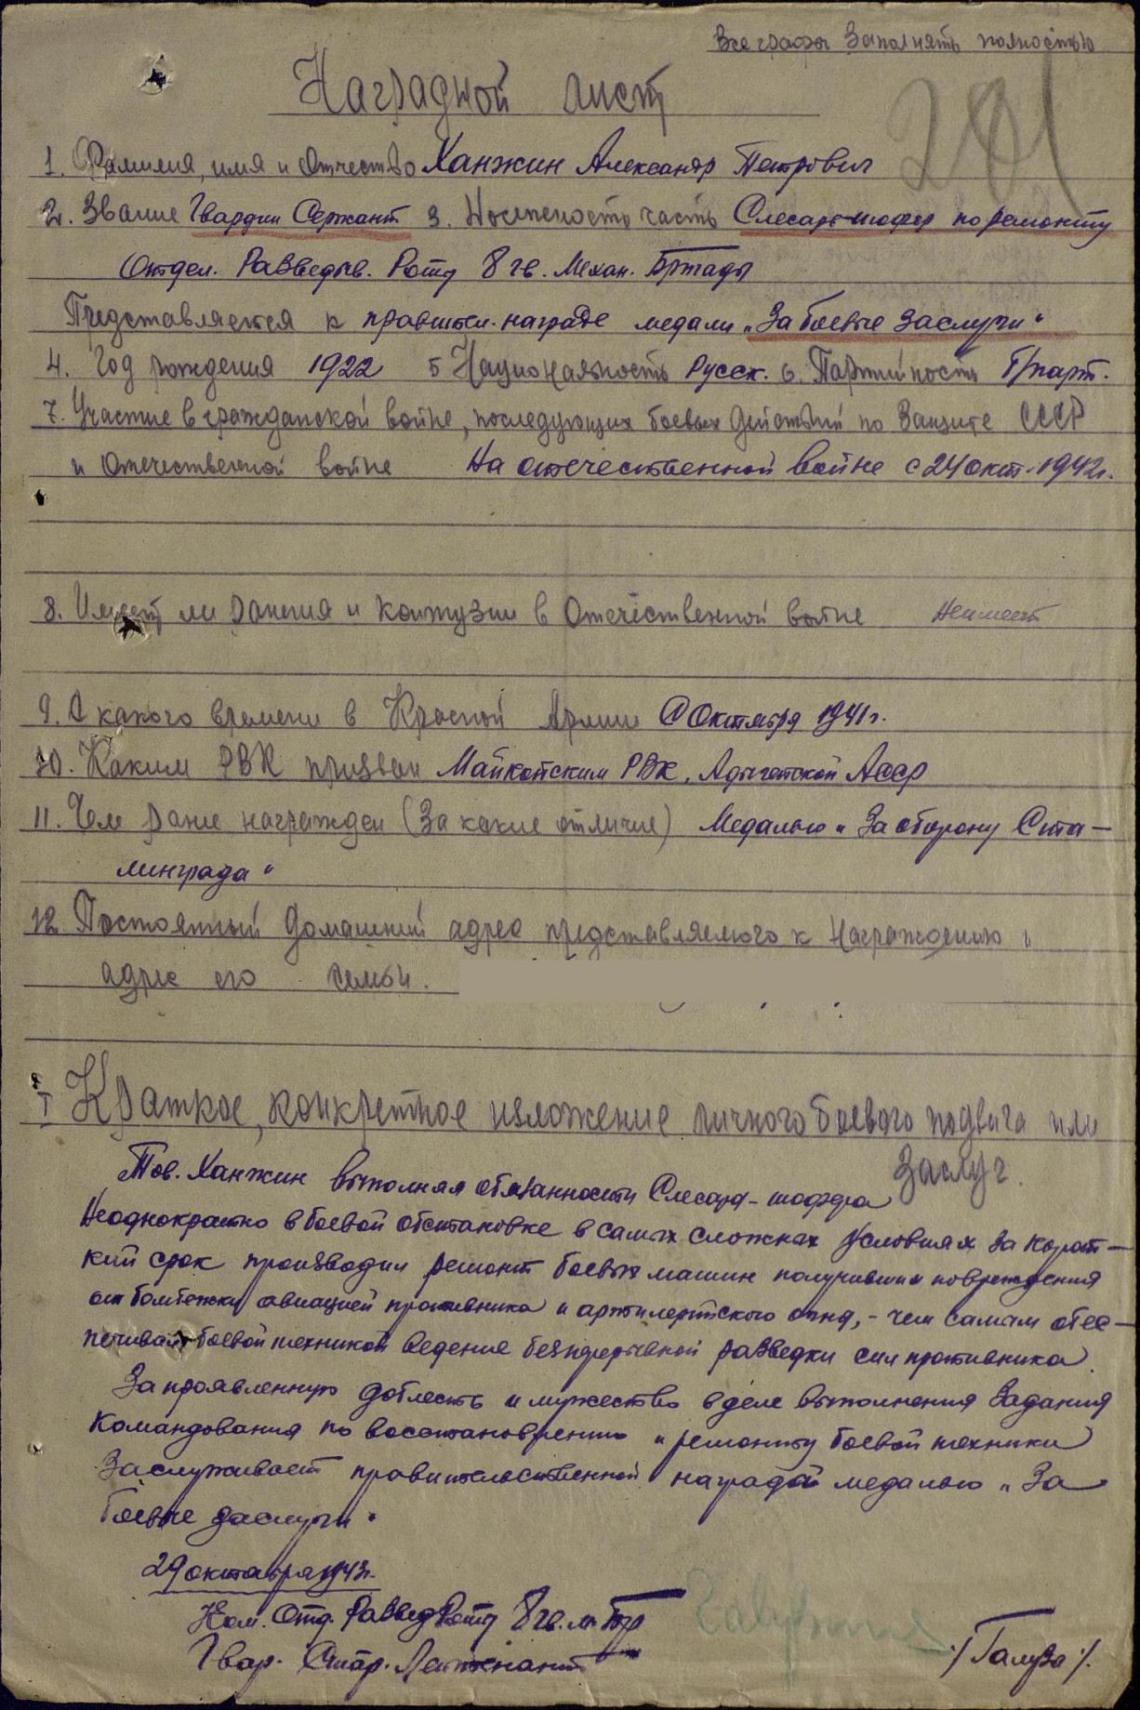 Все графы заполнять полностью
Наградной лист
201
1. Фамилия, имя и Отчество Ханжин Александр Петрович
2. Звание Гвардии Сержант 3. Должность часть Слесарь-шофер по ремонту
Отдел. Разведыв. Роты 8 гв. Механ. Бригады
Представляется к правител. награде медали „За боевые заслуги“
4. Год рождения 1922 5 Национальность Русск. 6. Партийность Б/парт.
7. Участие в гражданской войне, последующих боевых действий по защите СССР
и Отечественной войне На отечественной войне с 24 окт. 1942г.
8. Имеет ли ранения и контузии в Отечественной войне Неимеет
9. С какого времени в Красной Армии С Октября 1941г.
10. Каким РВК призван Майкопским РВК, Адыгейской АССР
11. Чем ранее награжден (За какие отличие) Медалью „За оборону Ста-
линграда“
12 Постоянный домашний адрес представляемого к награждению и
адрес его семьи.
I Краткое, конкретное изложение личного боевого подвига или
заслуг.
Тов. Ханжин выполняя обязанности Слесаря-шоффера
Неоднократно в боевой обстановке в самых сложных условиях за корот-
кий срок производил ремонт боевых машин получивших повреждения
от бомбежки авиацией противника и артилерийского огня, - чем самым обес-
печивал боевой техникой ведение безпрерывной разведки сил противника.
За проявленную доблесть и мужество в деле выполнения задания
Командования по восстановлению и ремонту боевой техники
Заслуживает правительственной награды медалью „За
боевые заслуги“.
29 октября 1943г.
Ком. Отд. РазведРоты 8 гв. м. Бр
Гвар. Стар. Лейтенант /Галуза/.